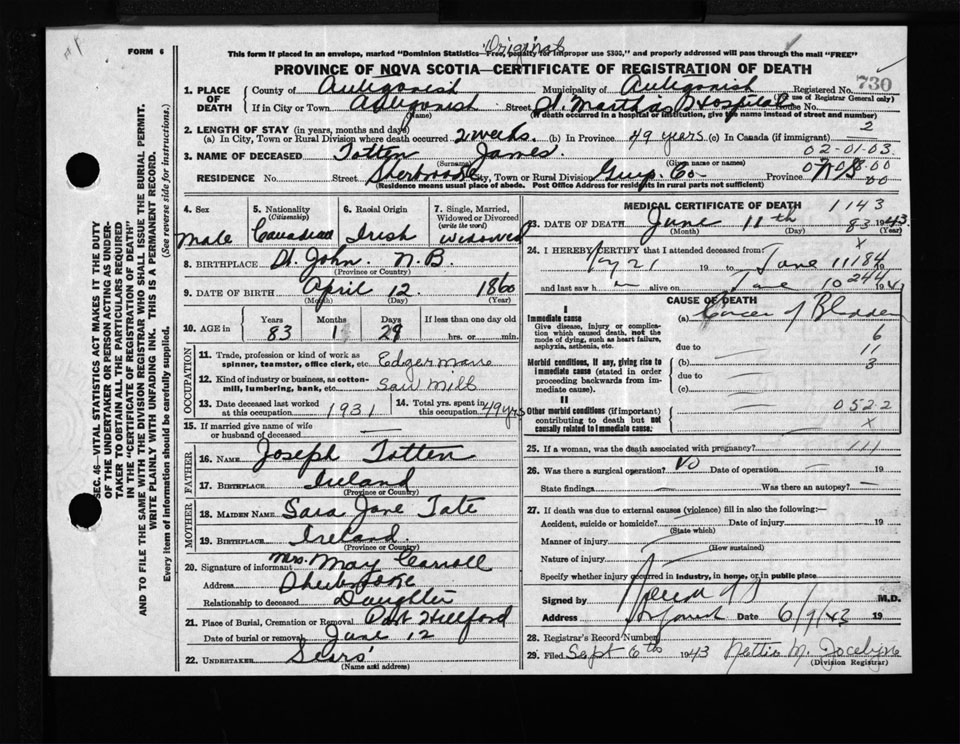 Original
FORM 6
This form if placed in an envelope, marked "Dominion Statistics—Free, penalty for improper use $300," and properly addressed will pass through the mail "FREE"
PROVINCE OF NOVA SCOTIA—CERTIFICATE OF REGISTRATION OF DEATH
730
1. PLACE OF DEATH
County of Antigonish Municipality of Antigonish Registered No.
(For use of Registrar General only)
If in City or Town Antigonish Street St. Martha's Hospital House No.
(Name) (If death occurred in a hospital or institution, give the name instead of street and number)
2. LENGTH OF STAY (in years, months and days)
(a) In City, Town or Rural Division where death occurred 2 weeks. (b) In Province 49 years (c) In Canada (if immigrant)
2
02-01-03
3. NAME OF DECEASED Totten James.
(Surname) (Given name or names)
RESIDENCE No. Street Sherbrooke City, Town or Rural Division Guy. Co. Province N.S.
(Residence means usual place of abode. Post Office Address for residents in rural parts not sufficient)
4. Sex Male
5. Nationality (Citizenship) Canadian
6. Racial Origin Irish
7. Single, Married, Widowed or Divorced (write the word) Widowed
8. BIRTHPLACE St. John. N.B.
(Province or Country)
9. DATE OF BIRTH April 12 1860
(Month) (Day) (Year)
10. AGE in Years Months Days If less than one day old
83 1 29 hrs. or min.
OCCUPATION
11. Trade, profession or kind of work as spinner, teamster, office clerk, etc. Edgerman
12. Kind of industry or business, as cotton-mill, lumbering, bank, etc. Saw Mill
13. Date deceased last worked at this occupation 1931
14. Total yrs. spent in this occupation 49 yrs
15. If married give name of wife or husband of deceased —
FATHER
16. NAME Joseph Totten
17. BIRTHPLACE Ireland
(Province or Country)
MOTHER
18. MAIDEN NAME Sara Jane Tate
19. BIRTHPLACE Ireland.
(Province or Country)
20. Signature of informant Mrs. May Carroll
Address Sherbrooke
Relationship to deceased Daughter
21. Place of Burial, Cremation or Removal Port Hillford
Date of burial or removal June 12
22. UNDERTAKER Sears'
(Name and address)
MEDICAL CERTIFICATE OF DEATH
1143
23. DATE OF DEATH June 11th 1943
83
(Month) (Day) (Year)
24. I HEREBY CERTIFY that I attended deceased from
May 21 19 to June 11 19
184
and last saw h im alive on June 10 194
244
CAUSE OF DEATH
I
Immediate cause
Give disease, injury or complication which caused death, not the mode of dying, such as heart failure, asphyxia, asthenia, etc.
(a) Cancer of Bladder
due to
6
Morbid conditions, if any, giving rise to immediate cause (stated in order proceeding backwards from immediate cause).
(b)
11
3
due to
(c)
II
Other morbid conditions (if important) contributing to death but not causally related to immediate cause.
0522
x
25. If a woman, was the death associated with pregnancy?
111
26. Was there a surgical operation? No Date of operation — 19
State findings — Was there an autopsy? —
27. If death was due to external causes (violence) fill in also the following:—
Accident, suicide or homicide? Date of injury 19
(State which)
Manner of injury
(How sustained)
Nature of injury
Specify whether injury occurred in industry, in home, or in public place
Signed by M.D.
Address Date 6/9/43 19
28. Registrar's Record Number
29. Filed Sept 6th 1943 Nettie M. Jocelyne
(Division Registrar)
SEC. 46—VITAL STATISTICS ACT MAKES IT THE DUTY
OF THE UNDERTAKER OR PERSON ACTING AS UNDER-
TAKER TO OBTAIN ALL THE PARTICULARS REQUIRED
IN THE "CERTIFICATE OF REGISTRATION OF DEATH"
AND TO FILE THE SAME WITH THE DIVISION REGISTRAR WHO SHALL ISSUE THE BURIAL PERMIT.
WRITE PLAINLY WITH UNFADING INK. THIS IS A PERMANENT RECORD.
Every item of information should be carefully supplied. (See reverse side for instructions.)